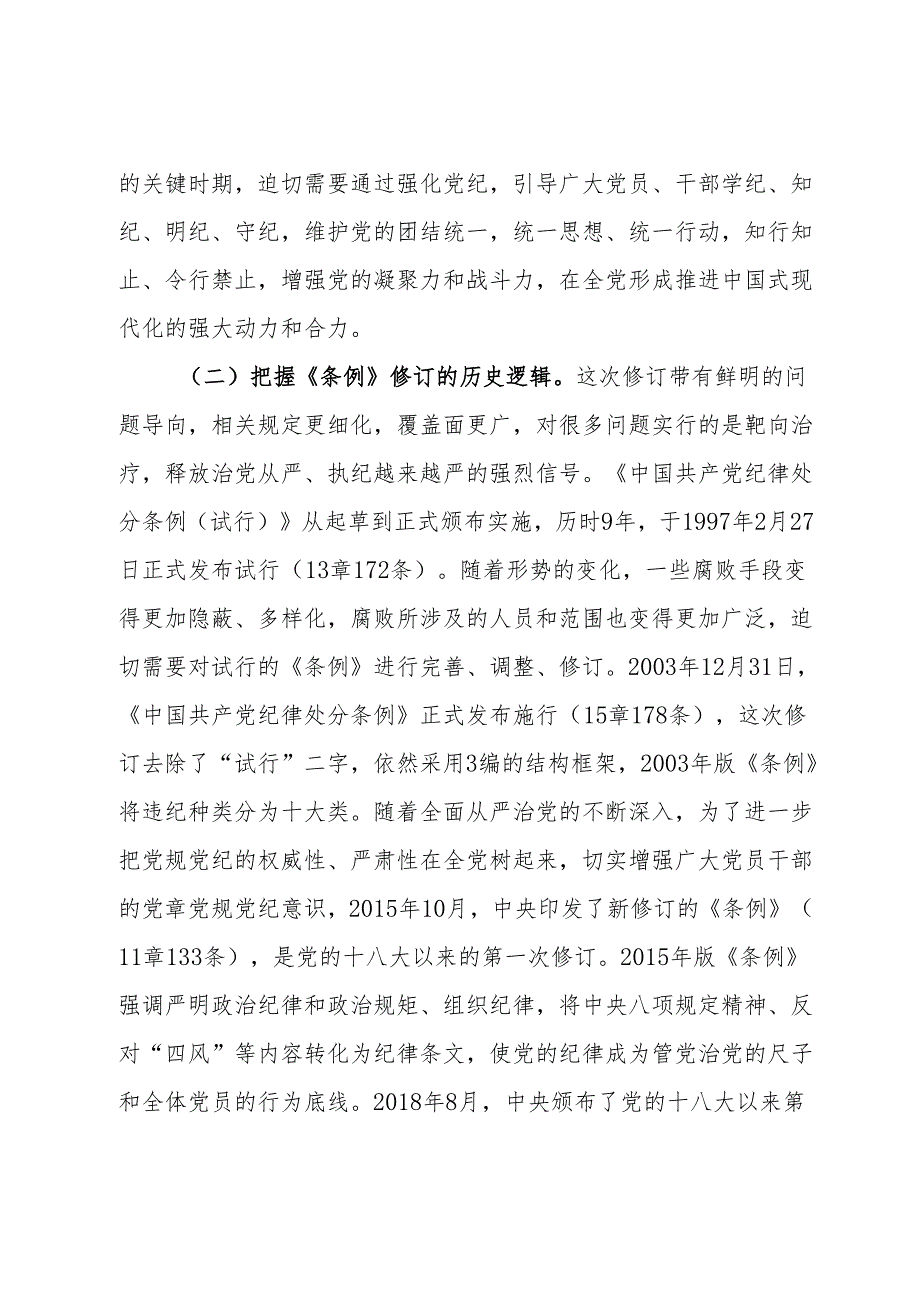 的关键时期，迫切需要通过强化党纪，引导广大党员、干部学纪、知
纪、明纪、守纪，维护党的团结统一，统一思想、统一行动，知行知
止、令行禁止，增强党的凝聚力和战斗力，在全党形成推进中国式现
代化的强大动力和合力。
（二）把握《条例》修订的历史逻辑。这次修订带有鲜明的问
题导向，相关规定更细化，覆盖面更广，对很多问题实行的是靶向治
疗，释放治党从严、执纪越来越严的强烈信号。《中国共产党纪律处
分条例（试行）》从起草到正式颁布实施，历时9年，于1997年2月27
日正式发布试行（13章172条）。随着形势的变化，一些腐败手段变
得更加隐蔽、多样化，腐败所涉及的人员和范围也变得更加广泛，迫
切需要对试行的《条例》进行完善、调整、修订。2003年12月31日，
《中国共产党纪律处分条例》正式发布施行（15章178条），这次修
订去除了“试行”二字，依然采用3编的结构框架，2003年版《条例》
将违纪种类分为十大类。随着全面从严治党的不断深入，为了进一步
把党规党纪的权威性、严肃性在全党树起来，切实增强广大党员干部
的党章党规党纪意识，2015年10月，中央印发了新修订的《条例》（
11章133条），是党的十八大以来的第一次修订。2015年版《条例》
强调严明政治纪律和政治规矩、组织纪律，将中央八项规定精神、反
对“四风”等内容转化为纪律条文，使党的纪律成为管党治党的尺子
和全体党员的行为底线。2018年8月，中央颁布了党的十八大以来第